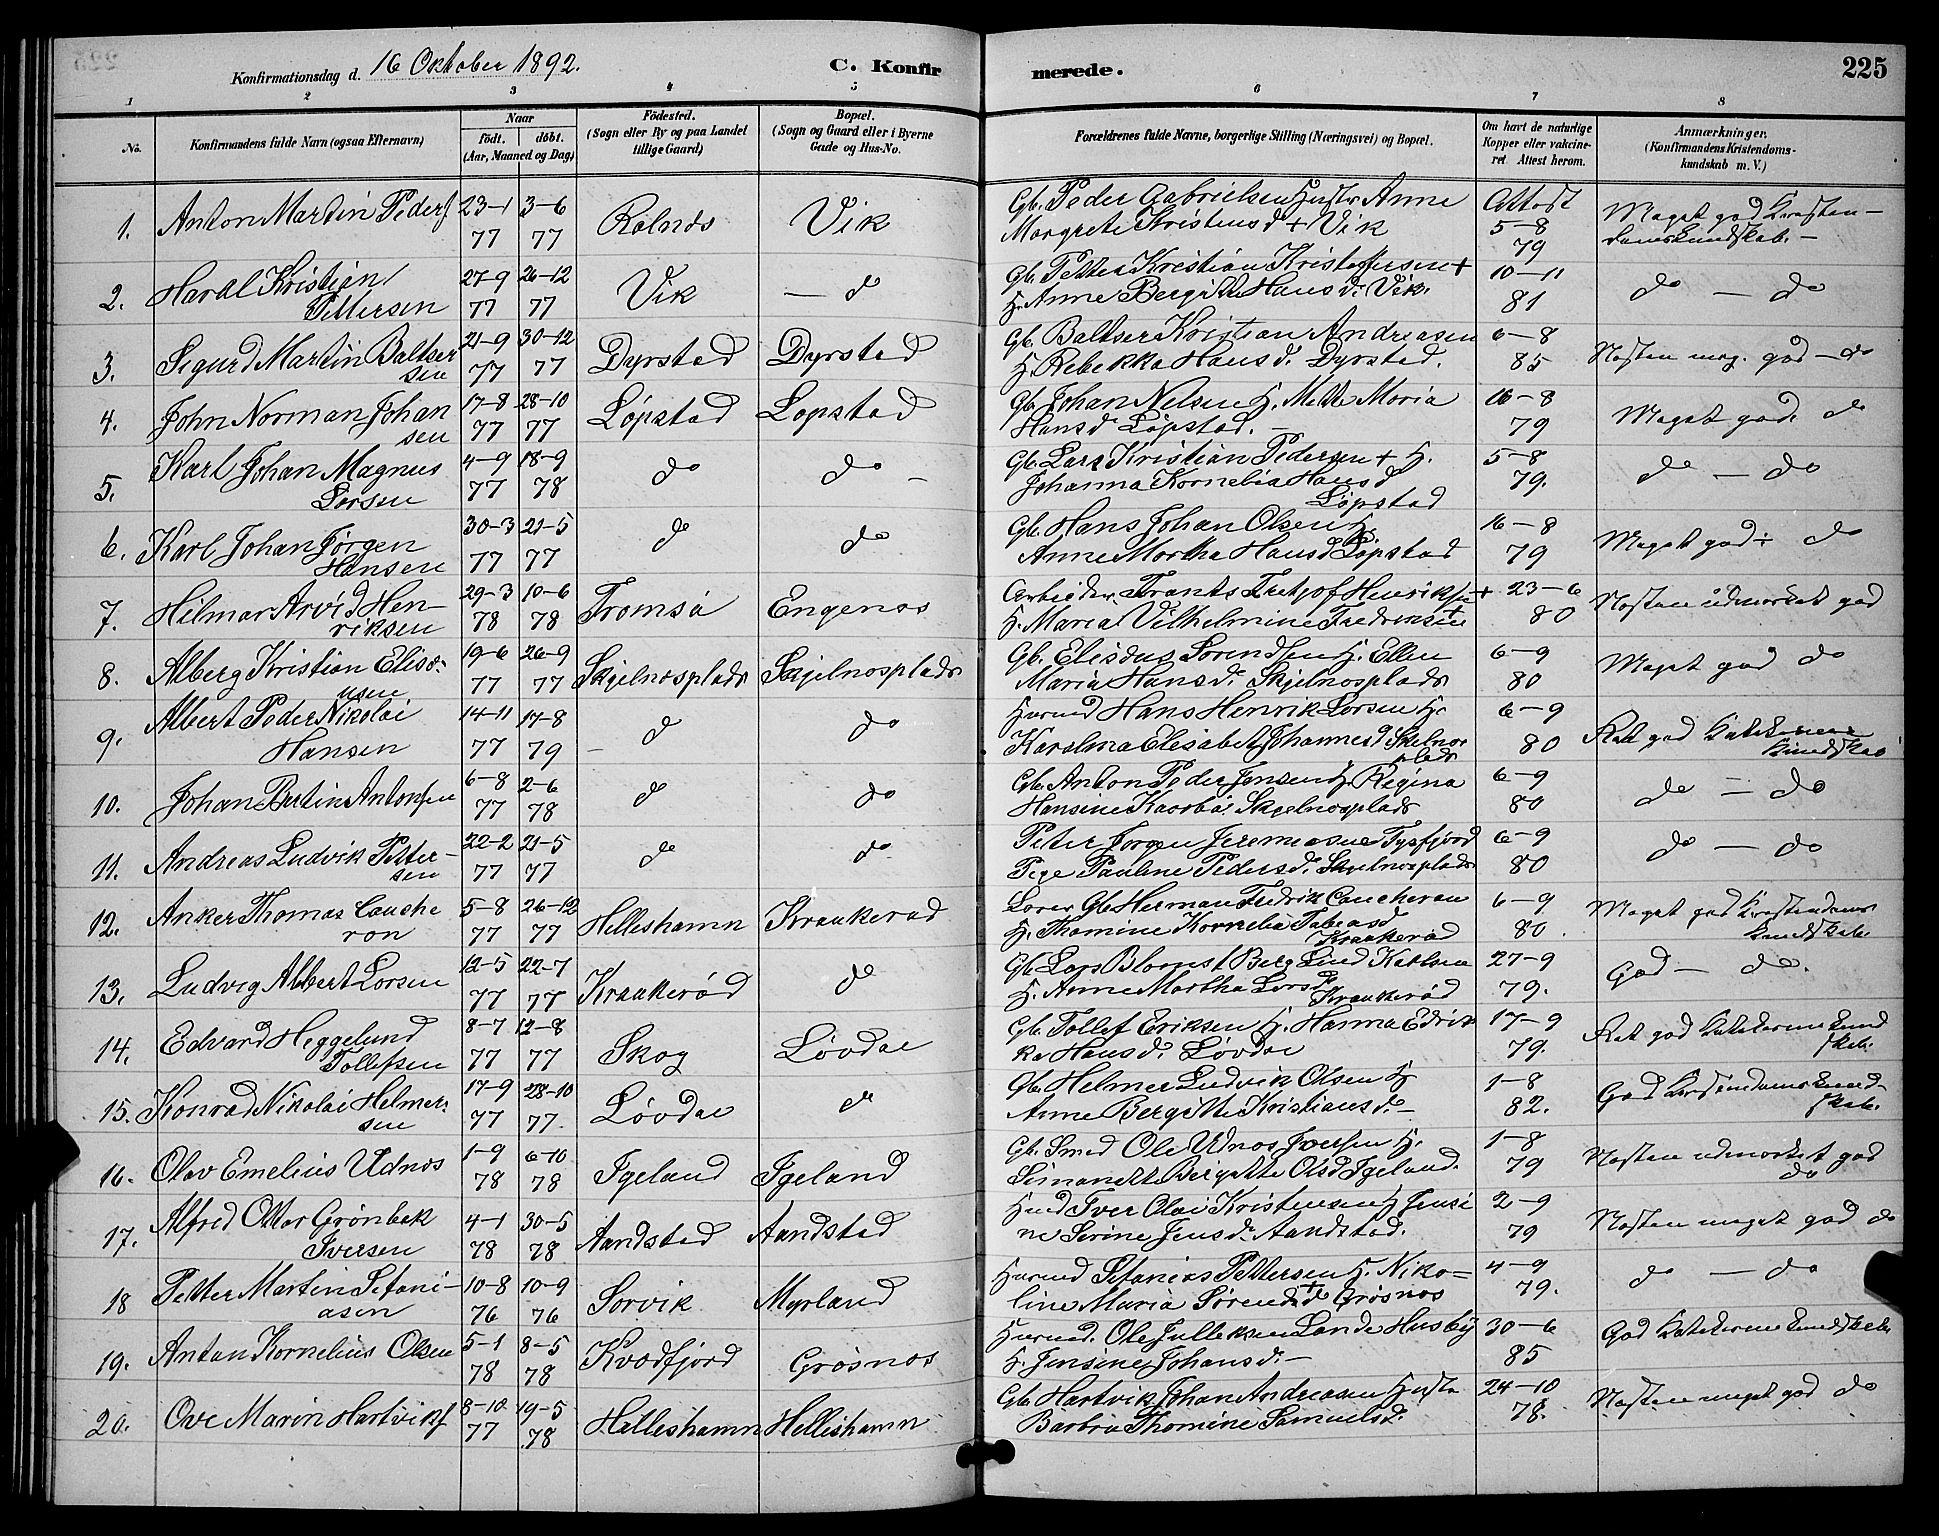 Konfirmationsdag d. 16 Oktober 1892. C. Konfir
merede. 225
1 2 3 4 5 6 7 8
No. Konfirmandens fulde Navn (ogsaa Efternavn) Naar født. døbt. (Aar, Maaned og Dag) Fødested. (Sogn eller By og paa Landet tillige Gaard) Bopæl. (Sogn og Gaard eller i Byerne Gade og Hus-No. Forældrenes fulde Navne, borgerlige Stilling (Næringsvei) og Bopæl. Om havt de naturlige Kopper eller vakcineret Attest herom. Anmærkninger. (Konfirmandens Kristendomskundskab m. V.)
1. Anton Martin Peders 23-1 77 3-6 77 Rolnæs Vik Gb. Peder Gabrielsen Hustr Anne
Margrete Kristensd + Vik Attest 5-8 79 Meget god Kristen-
domskundskab. -
2. Haral Kristian
Pettersen 27-9 77 26-12 77 Vik — do Gb. Petter Kristian Kristoffersen +
H. Anne Bergitte Hansd. Vik. 10-11 81 do — do
3. Sigurd Martin Baltser
sen 21-9 77 30-12 77 Dyrstad Dyrstad Gb. Baltser Kristian Andreasen
H. Rebekka Hansd. Dyrstad. 6-8 85 Næsten meg. god - do
4. John Norman Johan
sen 17-8 77 28-10 77 Løpstad Lopstad Gb. Johan Nelsen H. Mette Maria
Hansd Løpstad. - 16-8 79 Meget god. do
5. Karl Johan Magnus
Larsen 4-9 77 18-9 78 do do Gb. Lars Kristian Pedersen + H.
Johanna Kornelia Hansd
Løpstad 5-8 79. do — do
6. Karl Johan Jørgen
Hansen 30-3 77 21-5 77 do do Gb. Hans Johan Olsen H.
Anne Martha Hansd Løpstad 16-8 79 Meget god do
7. Hilmar Arvid Hen-
riksen 29-3 78 10-6 78 Tromsø Engenæs Arbeider. Frants Fretjof Henriksen +
H. Maria Vilhelmine Fredriksen + 23-6 80 Næsten udmerket god
8. Alberg Kristian Elisæ-
usen 19-6 77 26-9 77 Skjelnæsplads Skjelnæsplads Gb. Elisæus Sørendsen H. Ellen
Maria Hansd. Skjelnæsplads 6-9 80 Meget god do
9. Albert Peder Nikolai
Hansen 14-11 77 17-8 79 — do do Husmd Hans Henrik Larsen H.
Elisabet Johannesd Skelnæs
plads 6-9 80 Ret god Katekesme
kundskab
10. Johan Bertin Antonsen 6-8 77 2-6 78 do do Gb. Anton Peder Jensen H. Regina
Hansine Kaarbø. Skjelnæsplads 6-9 80 do — do
11. Andreas Ludvik Petter-
sen 22-2 77 21-5 77 do do Peter Jørgen Jeremiasen Tysfjord
Pige Pauline Pedersd. Skjelnæsplads 6-9 80 do — do
12. Anker Thomas Cauche
ron 5-8 77 26-12 77 Helleshamn Kraakerød Lærer Gb. Herman Fredrik Caucheron
H. Thomine Kornelia Tobiasd
Kraakerød 6-9 80. Meget god Kristendoms
kundskab.
13. Ludvig Albert Larsen 12-5 77 22-7 77 Kraakerød do Gb. Lars Blomst Berg Lind Karlsen
H. Anne Martha Larsd
Kraakerød 27-9 79. God — do.
14. Edvard Heggelund
Tollefsen 8-7 77 12-8 77 Skog Løvdal Gb. Tollef Eriksen H. Hanna Edrik
ka Hansd. Løvdal 17-9 79. Ret god Katekesme kund
skab.
15. Konrad Nikolai Helmer-
sen 17-9 77 28-10 77. Løvdal do Gb. Helmer Ludvik Olsen H
Anne Bergitte Kristiansd. - 1-8 82. God Kristendomskund-
skab.
16. Olav Emelius Udnæs 1-9 78 6-10 78 Igeland Igeland Gb. Smed Ole Udnæs Iversen H.
Bergitte Olsd Igeland. 1-8 79 Næsten udmerket god
do
17. Alfred Ottar Grønbek
Iversen 4-1 78 30-5 78 Aandstad Aandstad Hmd Iver Olai Kristensen H Jensi
ne Serine Jensd. Aandstad. 2-9 79 Næsten meget god do
18 Petter Martin Sefani-
asen 10-8 76 10-9 76 Sørvik Myrland Husmd Sefanias Pettersen H. Niko-
line Maria Sørensd + Grøsnes 4-9 79. do — do
19. Anton Kornelius Olsen 5-1 78 8-5 78 Kvædfjord Grøsnes Husmd. Ole Husby
H. Jensine Johansd. - 30-6 85 God Katekesme kundskab
20. Ove Marin Hartviks 8-10 77 19-5 78 Helleshamn Hellishamn Gb. Hartvik Johan Andreasen Hustr
Barbra Thomine Samuelsd. 24-10 78. Næsten meget god do